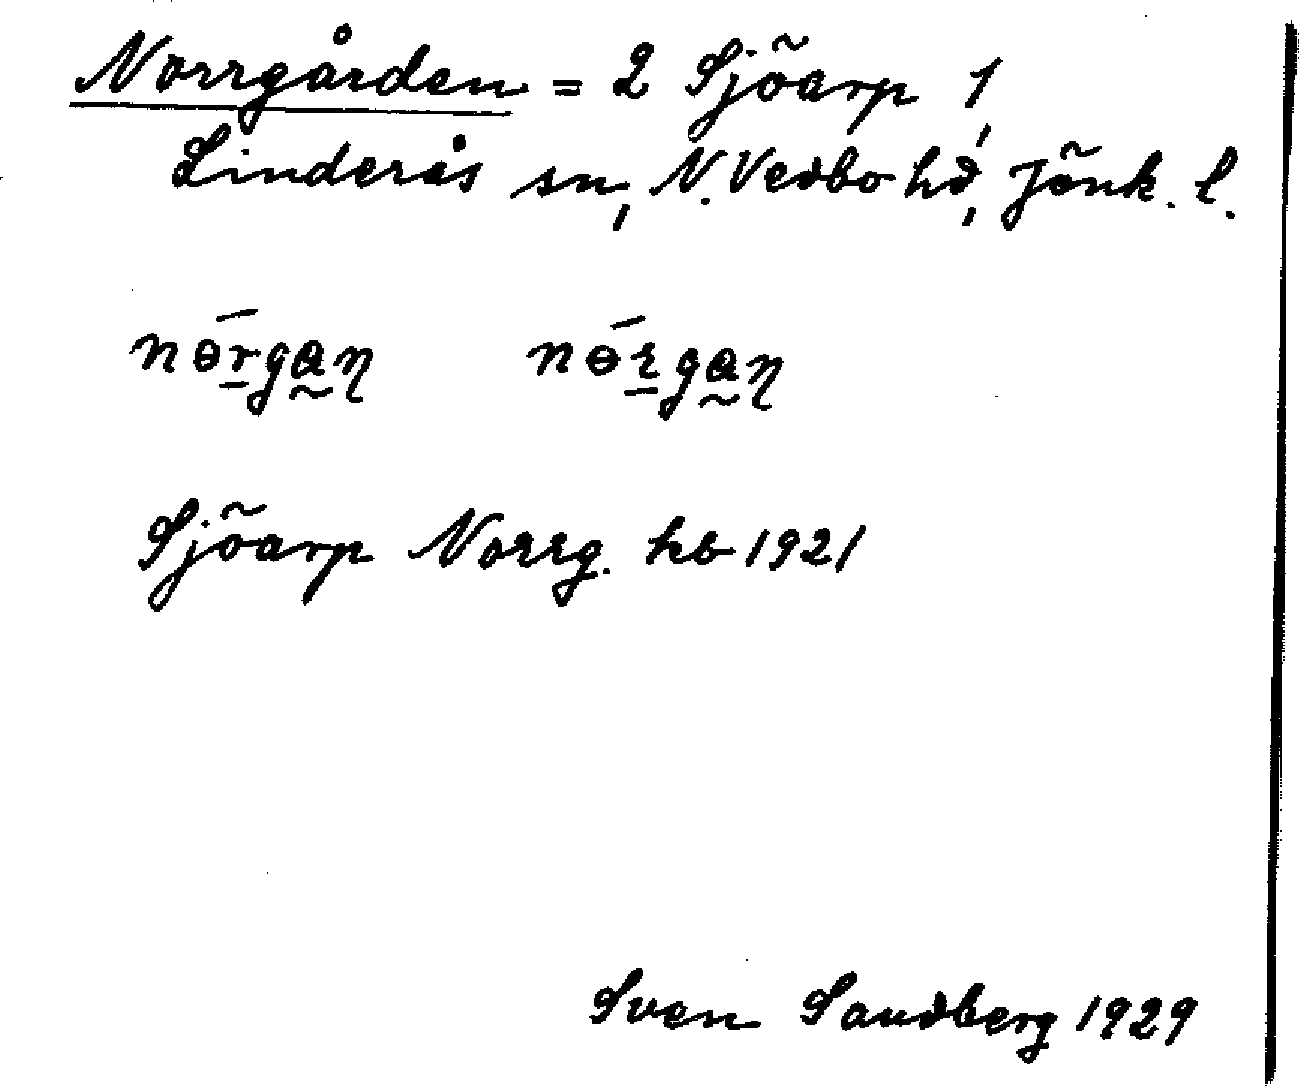 Norrgården = 2 Sjöarp 1,
Linderås sn, N. Vedbo hd, Jönk. l.
nɵ́r̲ga̰ɳ nɵ́ɽ̲ga̰ɳ
Sjöarp Norrg. hb 1921
Sven Sandberg 1929